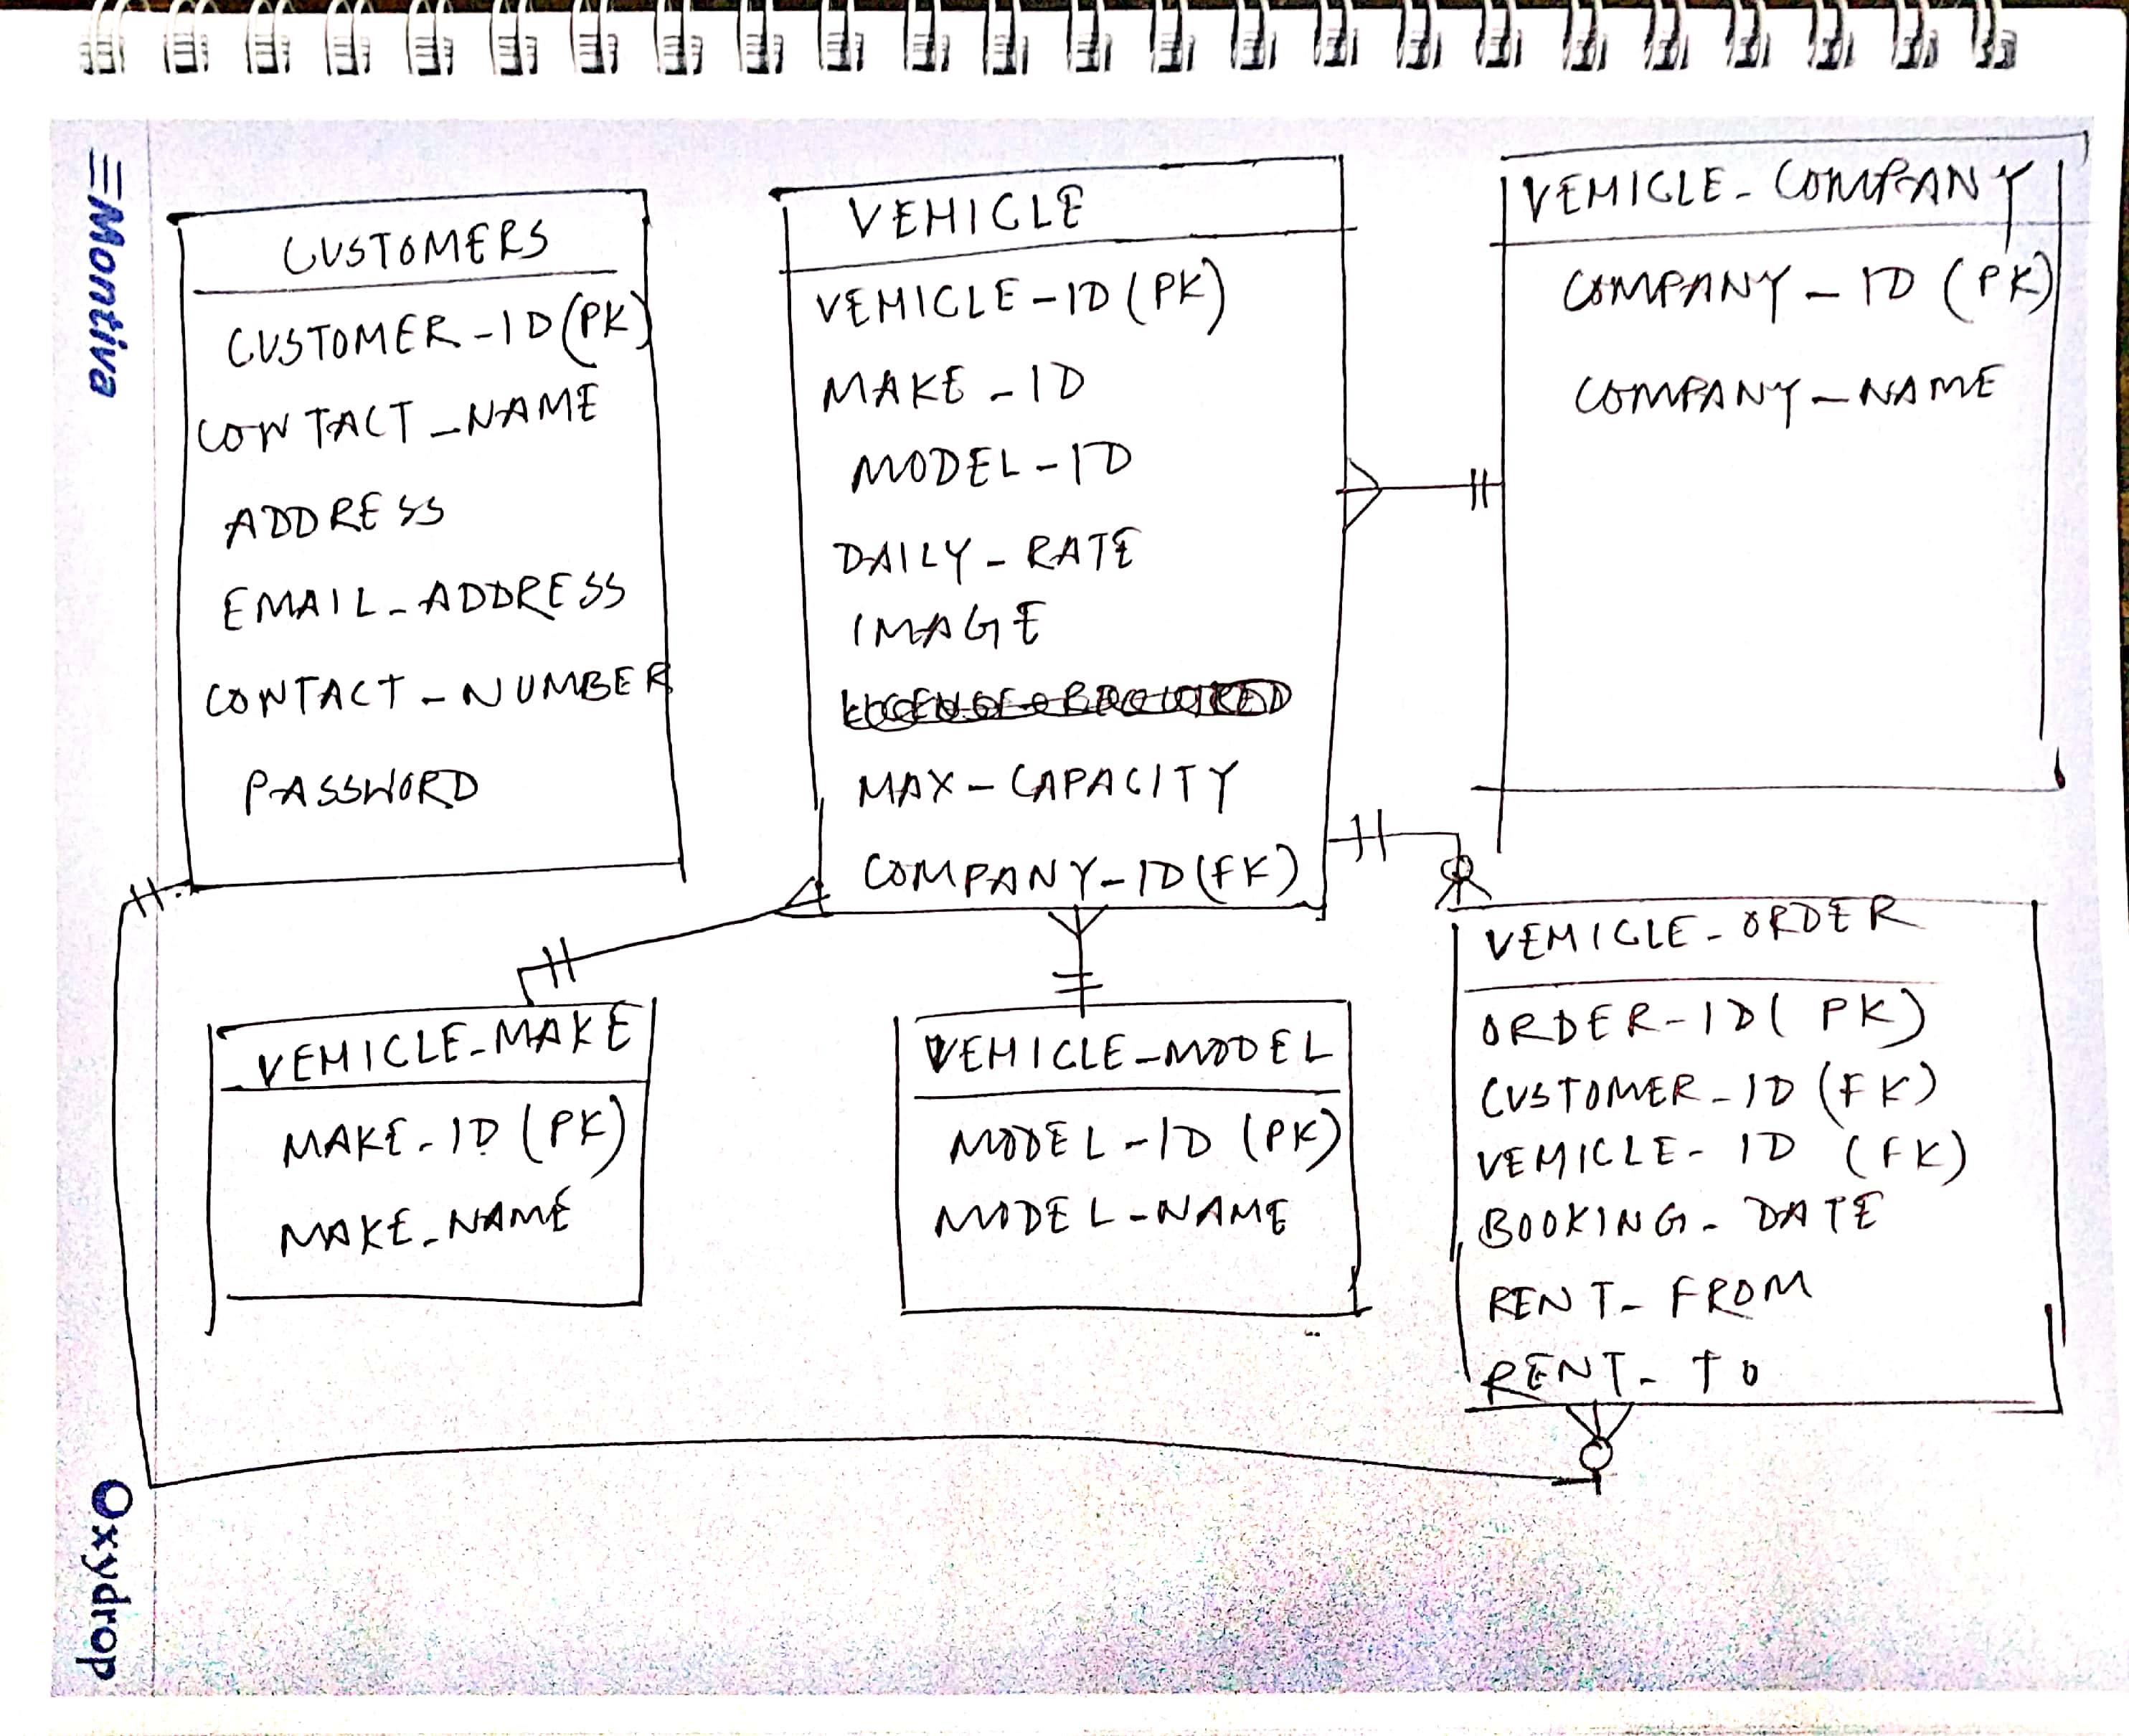 Montiva
CUSTOMERS
CUSTOMER_ID (PK)
CONTACT_NAME
ADDRESS
EMAIL_ADDRESS
CONTACT_NUMBER
PASSWORD
VEHICLE
VEHICLE_ID (PK)
MAKE_ID
MODEL_ID
DAILY_RATE
IMAGE
MAX_CAPACITY
COMPANY_ID (FK)
VEHICLE_COMPANY
COMPANY_ID (PK)
COMPANY_NAME
VEHICLE_MAKE
MAKE_ID (PK)
MAKE_NAME
VEHICLE_MODEL
MODEL_ID (PK)
MODEL_NAME
VEHICLE_ORDER
ORDER_ID (PK)
CUSTOMER_ID (FK)
VEHICLE_ID (FK)
BOOKING_DATE
RENT_FROM
RENT_TO
Oxydrop